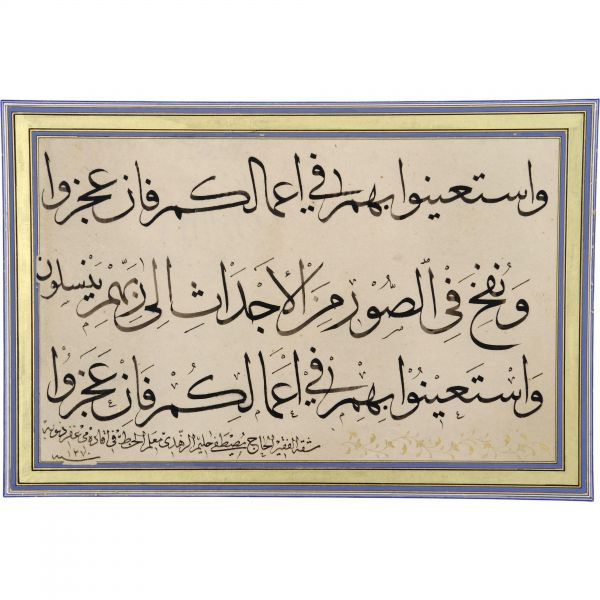 واستعينوا بهم في اعمالكم فان عجزوا
وَنُفِخَ فِي الصُّورِ مِنَ الْأَجْدَاثِ إِلَى رَبِّهِمْ يَنْسِلُونَ
وَاسْتَعِينُوا بِهِمْ فِي اَعْمَالِكُمْ فَاِنْ عَجَزُوا
مشقه الفقير الحاج مصطفى حليم الزهدى معلم الخط فى
سنه ١٣٧٠